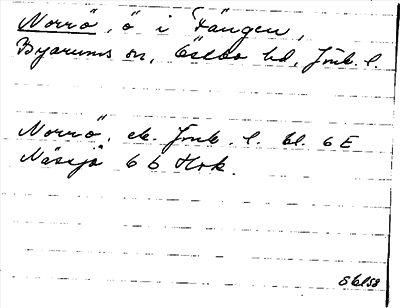 Norrö, ö i Fängen,
Byarums sn, Östbo hd, Jönk. l.
Norrö, ek. Jönk. l. bl. 6 E
Nässjö 6 b Hok.
Skl58